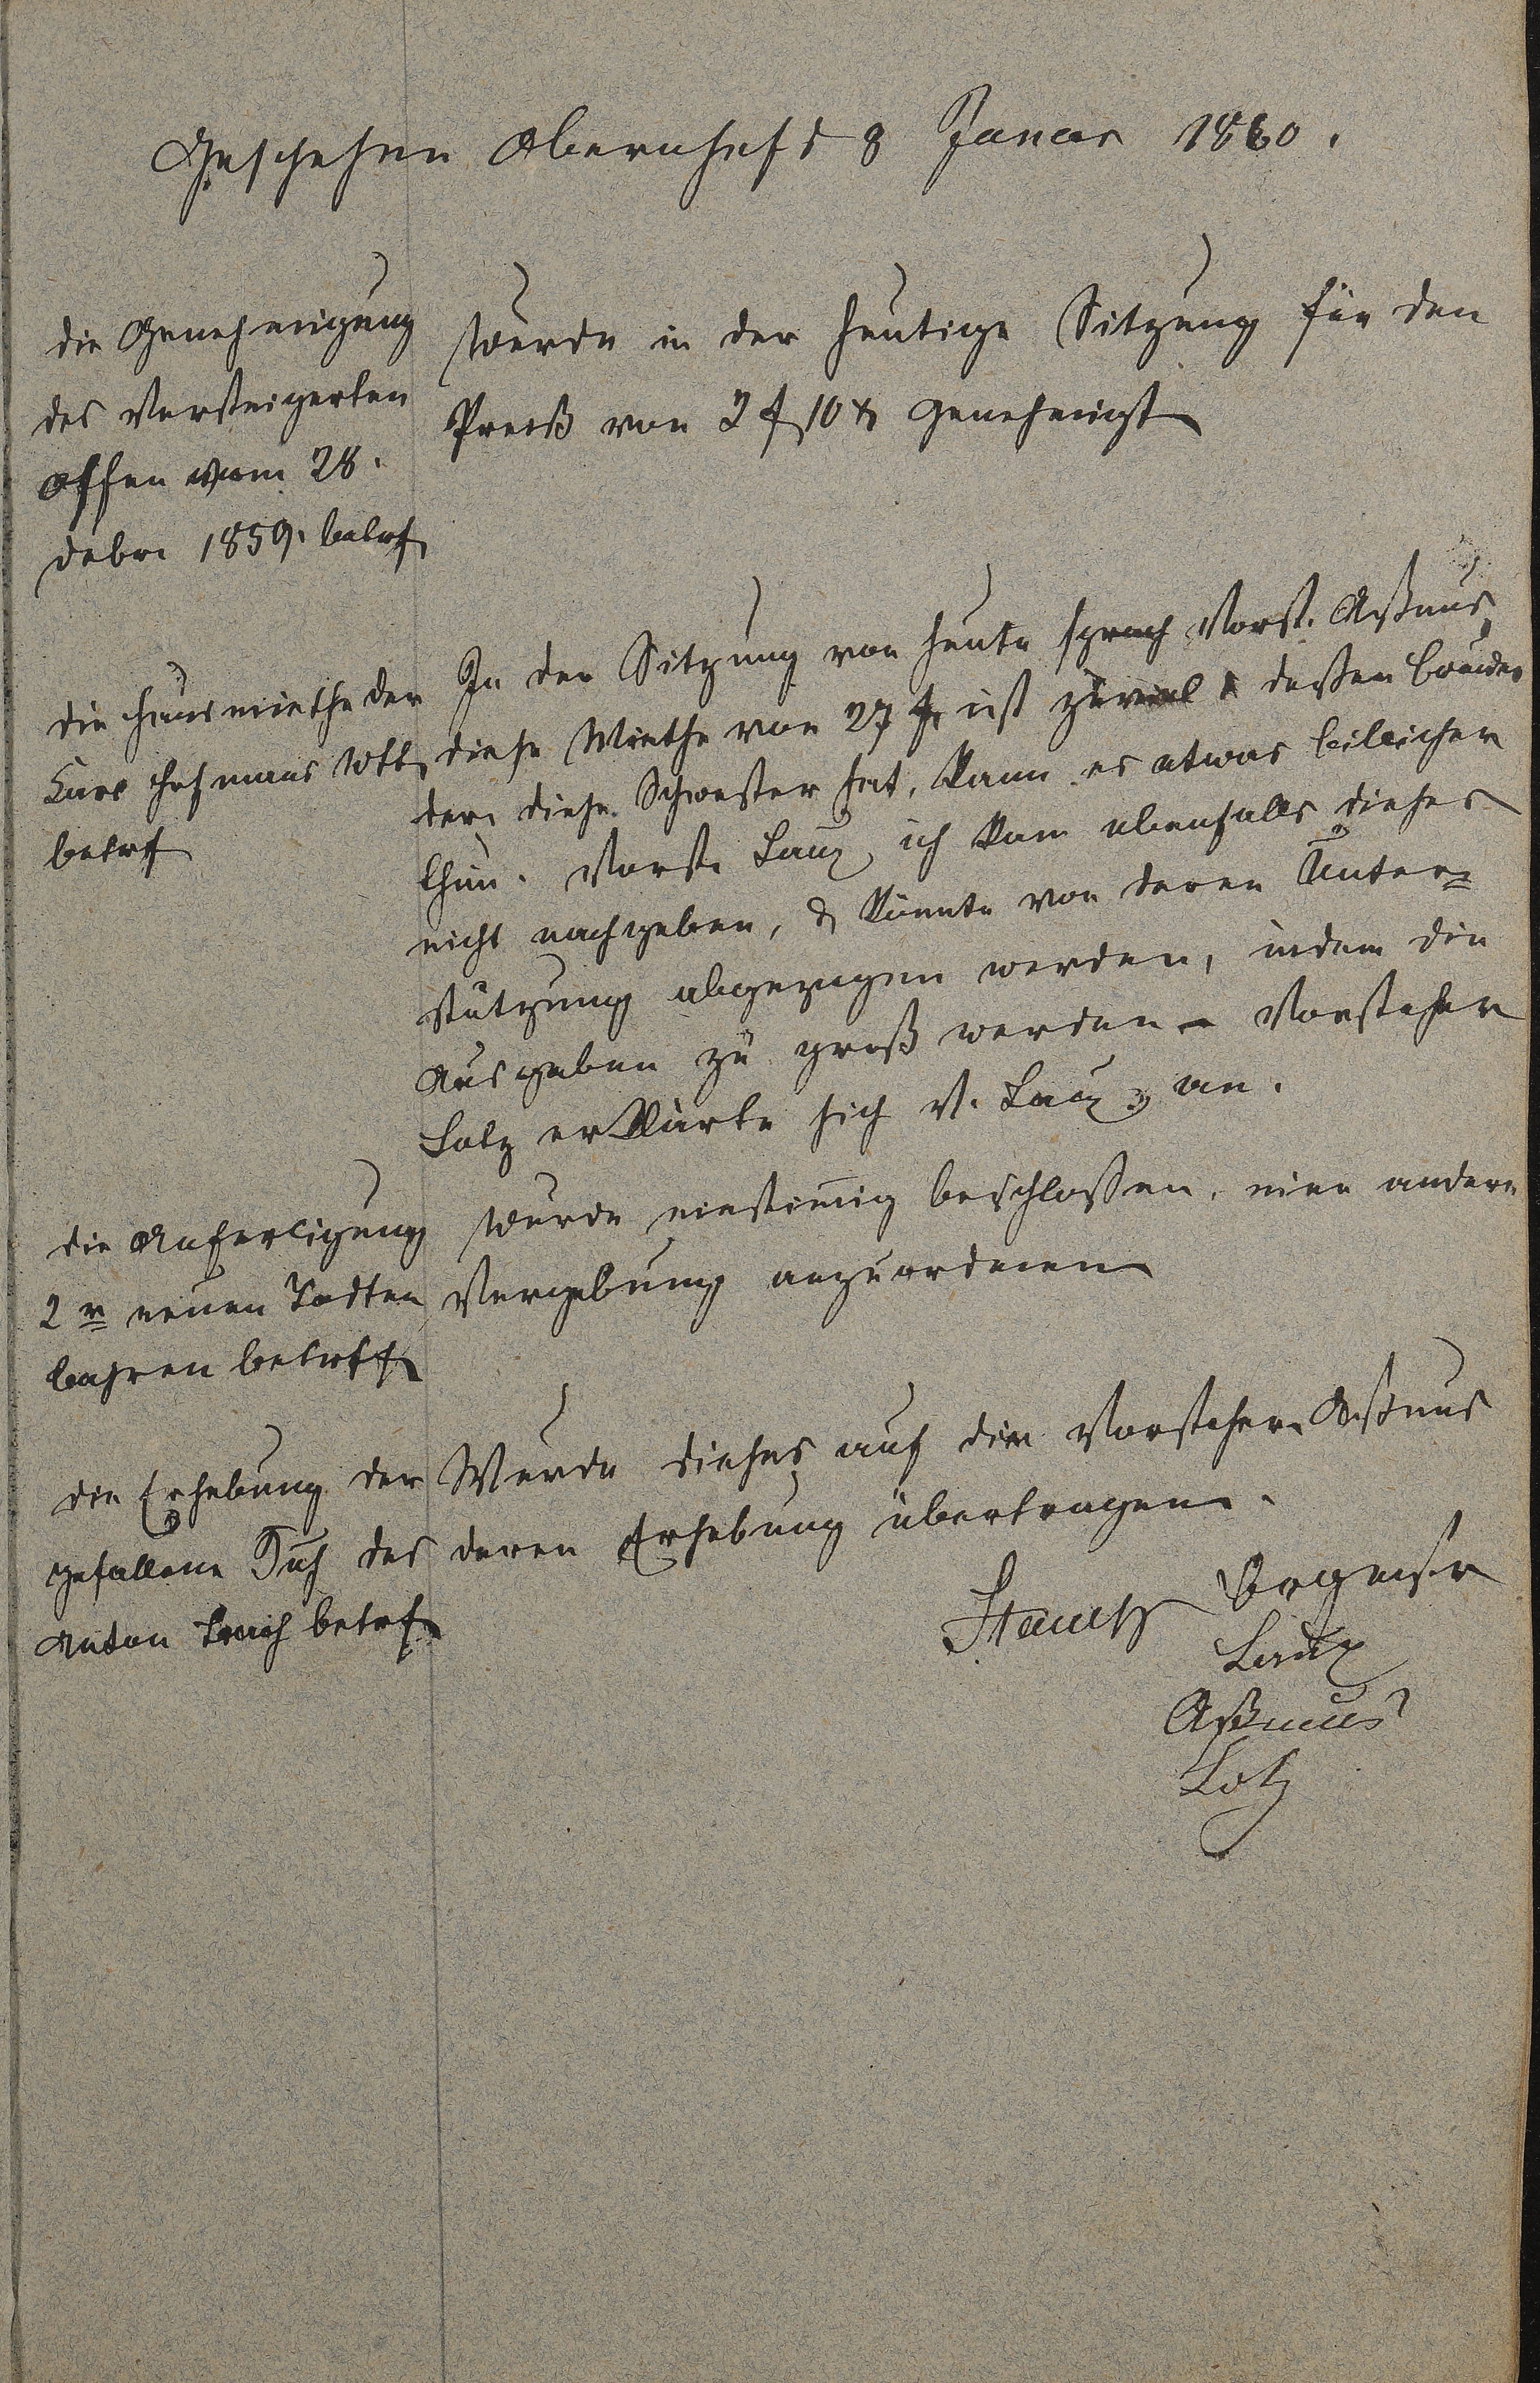 Geschehen Obernhof d 8 Januar 1860.
die Genehmigung
des versteigerten
Offen vom 28.
debr 1859. betrf
wurde in der heutige Sitzung für den
Preiß von 2 f 10 x genehmigt
die Hausmiethe der
Karl Hofmans Wtb
betrf
In der Sitzung von heute sprach Vorst. Aßmus
diese Miethe von 27 f ist zuviel & dessen bruder
der diese Schwester hat, kann es etwas billicher
thun. Vorst. Laux ich kann ebenfalls dieses
nicht nachgeben, & könnte von deren Unter=
stützung abgezogen werden, indem die
Ausgaben zu groß werden Vorsteher
Lotz erklärte sich V. Laux an.
die Anfertigung
2 r neuen Todten
bahren betrff
wurde einstimig beschlossen, eine andere
Vergebung anzuordenen
die Erhebung der
gefallene Kuh des
Anton betrf
Wurde dieses auf die Vorsteher Aßmus
deren Erhebung übertragen.
Bürgmstr
Laux
Aßmus
Lotz